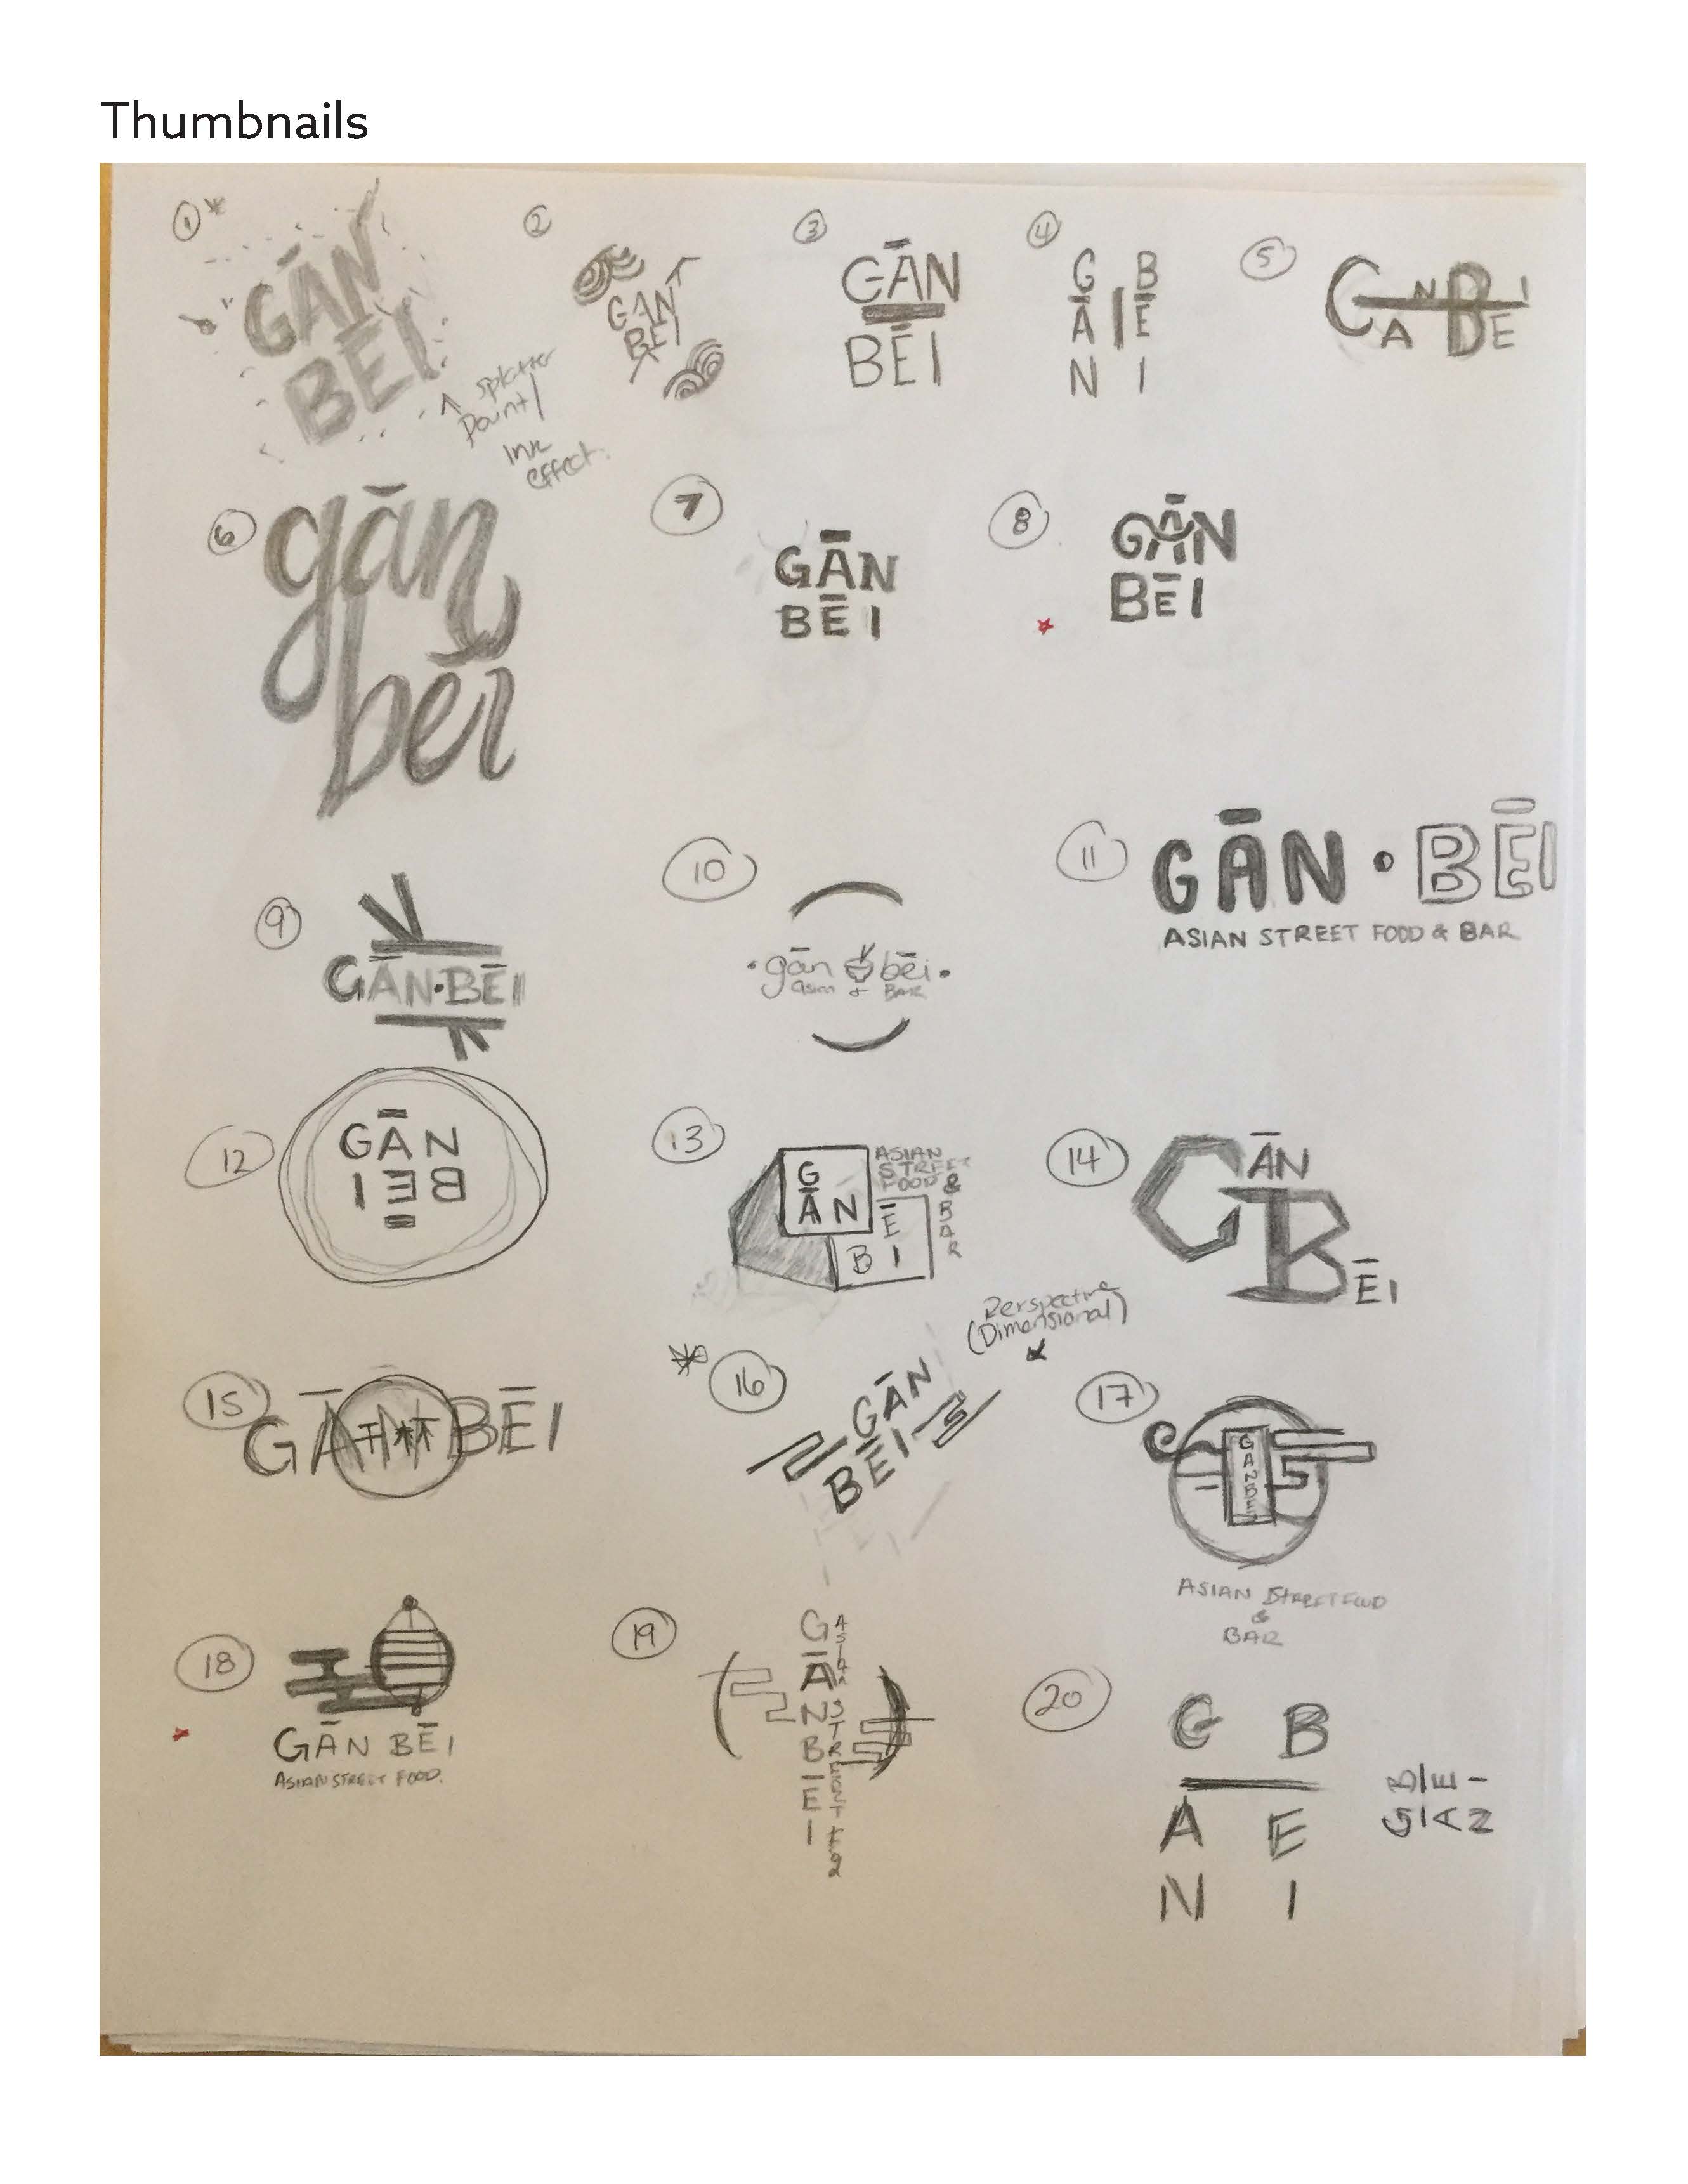 Thumbnails
1*
GĀN
BĒI
splatter
paint/
ink
effect.
2
GAN
BEI
3
GĀN
BĒI
4
G B
Ā Ē
N I
5
GANBEI
6
gān
bēi
7
GĀN
BĒI
8
GĀN
BĒI
9
GĀN·BĒI
10
·gān bēi·
asian + BAR
11
GĀN·BĒI
ASIAN STREET FOOD & BAR
12
GĀN
BĒI
13
G
ĀN
Ē
BI
ASIAN
STREET
FOOD &
BAR
14
GĀN
BĒI
15
GĀN BĒI
*16
GĀN
BĒI
Perspective
(Dimensional)
17
GANBEI
ASIAN STREET FOOD
&
BAR
18
GĀN BĒI
ASIAN STREET FOOD.
19
GĀNBĒI
ASIAN STREET
20
G B
A E
N I
B E I
G A N